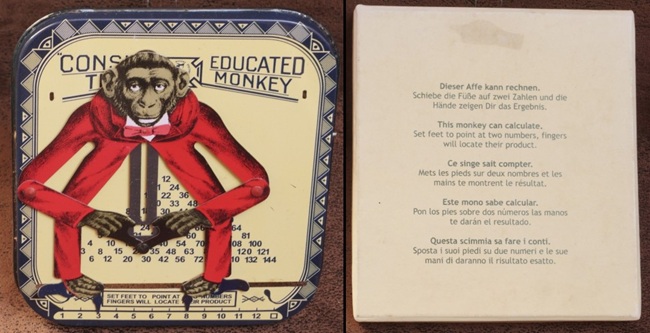 "CONS EDUCATED
T MONKEY
12
24
4 10 64 80 100
3 8 15 70 88 108
2 6 12 20 30 42 56 72 90 110 132 144
SET FEET TO POINT AT NUMBERS
FINGERS WILL LOCATE PRODUCT
1 2 3 4 5 6 7 8 9 10 11 12
Dieser Affe kann rechnen.
Schiebe die Füße auf zwei Zahlen und die
Hände zeigen Dir das Ergebnis.
This monkey can calculate,
Set feet to point at two numbers, fingers
will locate their product.
Ce singe sait compter.
Mets les pieds sur deux nombres et les
mains te montrent le résultat.
Este mono sabe calcular.
Pon los pies sobre dos números las manos
te darán el resultado.
Questa scimmia sa fare i conti.
Sposta i suoi piedi su due numeri e le sue
mani di daranno il risultato esatto.